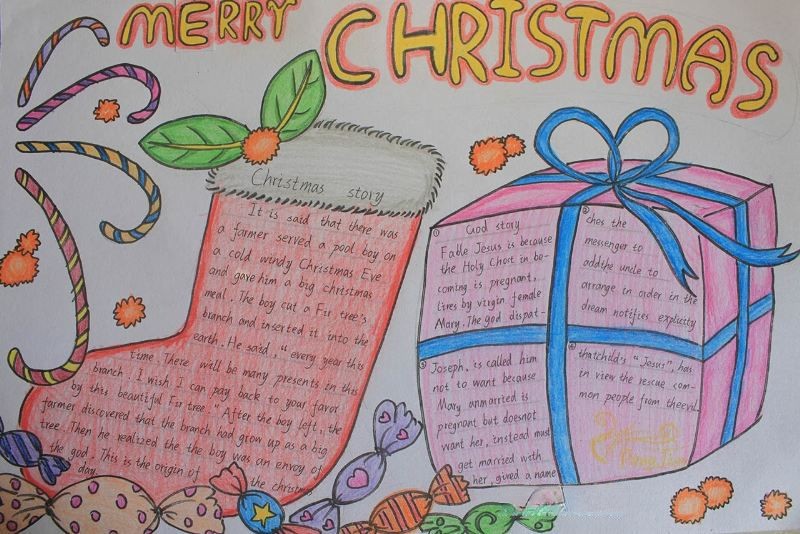 MERRY CHRISTMAS
Christmas story
It is said that there was
a farmer served a pool boy on
a cold windy Christmas Eve
and gave him a big christmas
meal. The boy cut a Fir tree's
branch and inserted it into the
earth. He said, "every year this
time. There will be many presents in this
branch. I wish I can pay back to your favor
by this beautiful Fir tree." After the boy left, the
farmer discovered that the branch had grow up as a big
tree. Then he realized the the boy was an envoy of
the god. This is the origin of the christmas
day.
① God story
Fable Jesus is because
the Holy Ghost in be-
coming is pregnant,
lives by virgin female
Mary. The god dispat-
② ches the
messenger to
addthe uncle to
arrange in order in the
dream notifies explicity
③ Joseph, is called him
not to want because
Mary unmarried is
pregnant but doesnot
want her, instead must
get married with
her, gived a name
④ thatchild's "Jesus", has
in view the rescue com-
mon people from theevil.